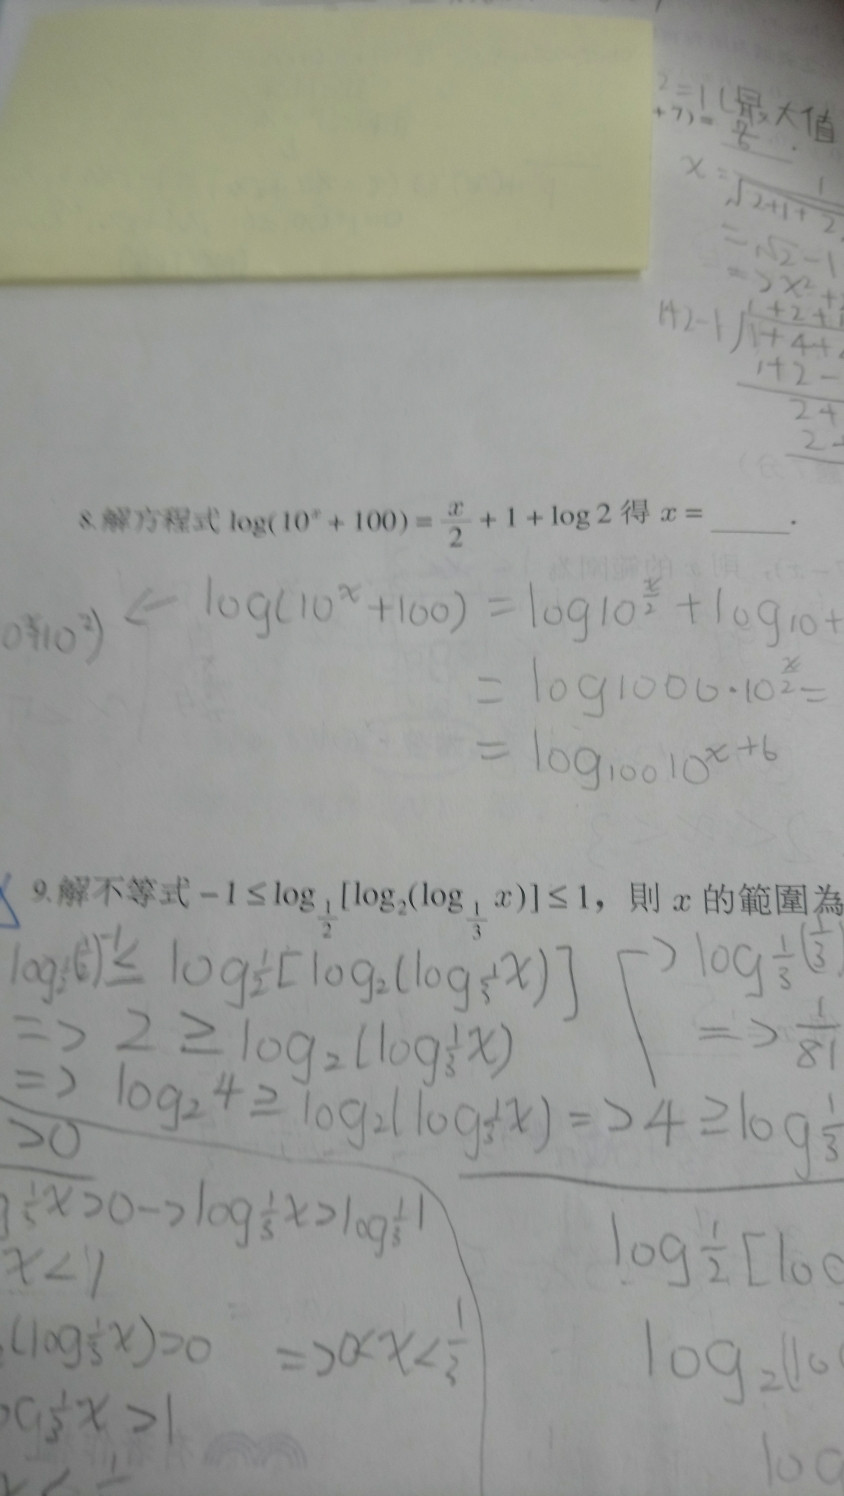 2=1(最大值
+7)=
x=1/√2+1+2
=√2-1
=>x²+
1+2-1 1+2+1
1+4+
1+2-
2+
2+
8.解方程式 log(10ˣ+100)=x/2+1+log2 得 x=____.
← log(10ˣ+100)=log10^(x/2)+log10+
=log1000·10^(x/2)=
=log100 10^(x+6)
9.解不等式 -1≤log_(1/2)[log₂(log_(1/3) x)]≤1，則 x 的範圍為
≤ log_(1/2)[log₂(log_(1/3)x)]
=> 2≥log₂(log_(1/3)x)
=> log₂4≥log₂(log_(1/3)x)=>4≥log_(1/3)
-> log_(1/3)(1/3)
=> 1/81
>0
(1/3)x>0->log_(1/3)x>log_(1/3)1
x<1
(log_(1/3)x)>0 =>0<x<1/3
(1/3)x>1
log_(1/2)[log
log₂(lo
log